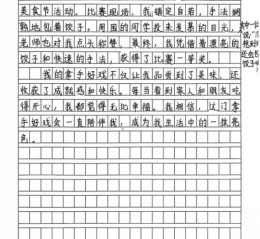 美食节活动，比赛现场，我镇定自若，手法娴
熟地包着饺子。周围的同学投来羡慕的目光，
老师也对我点头称赞。最终，我凭借着漂亮的
饺子和快速的手法，获得了比赛一等奖。
我的拿手好戏不仅让我品尝到了美味，还
收获了成就感和快乐。每当看到家人和朋友吃
得开心，我都觉得无比幸福。我相信，这门拿
手好戏会一直陪伴我，成为我生活中的一抹亮
色。